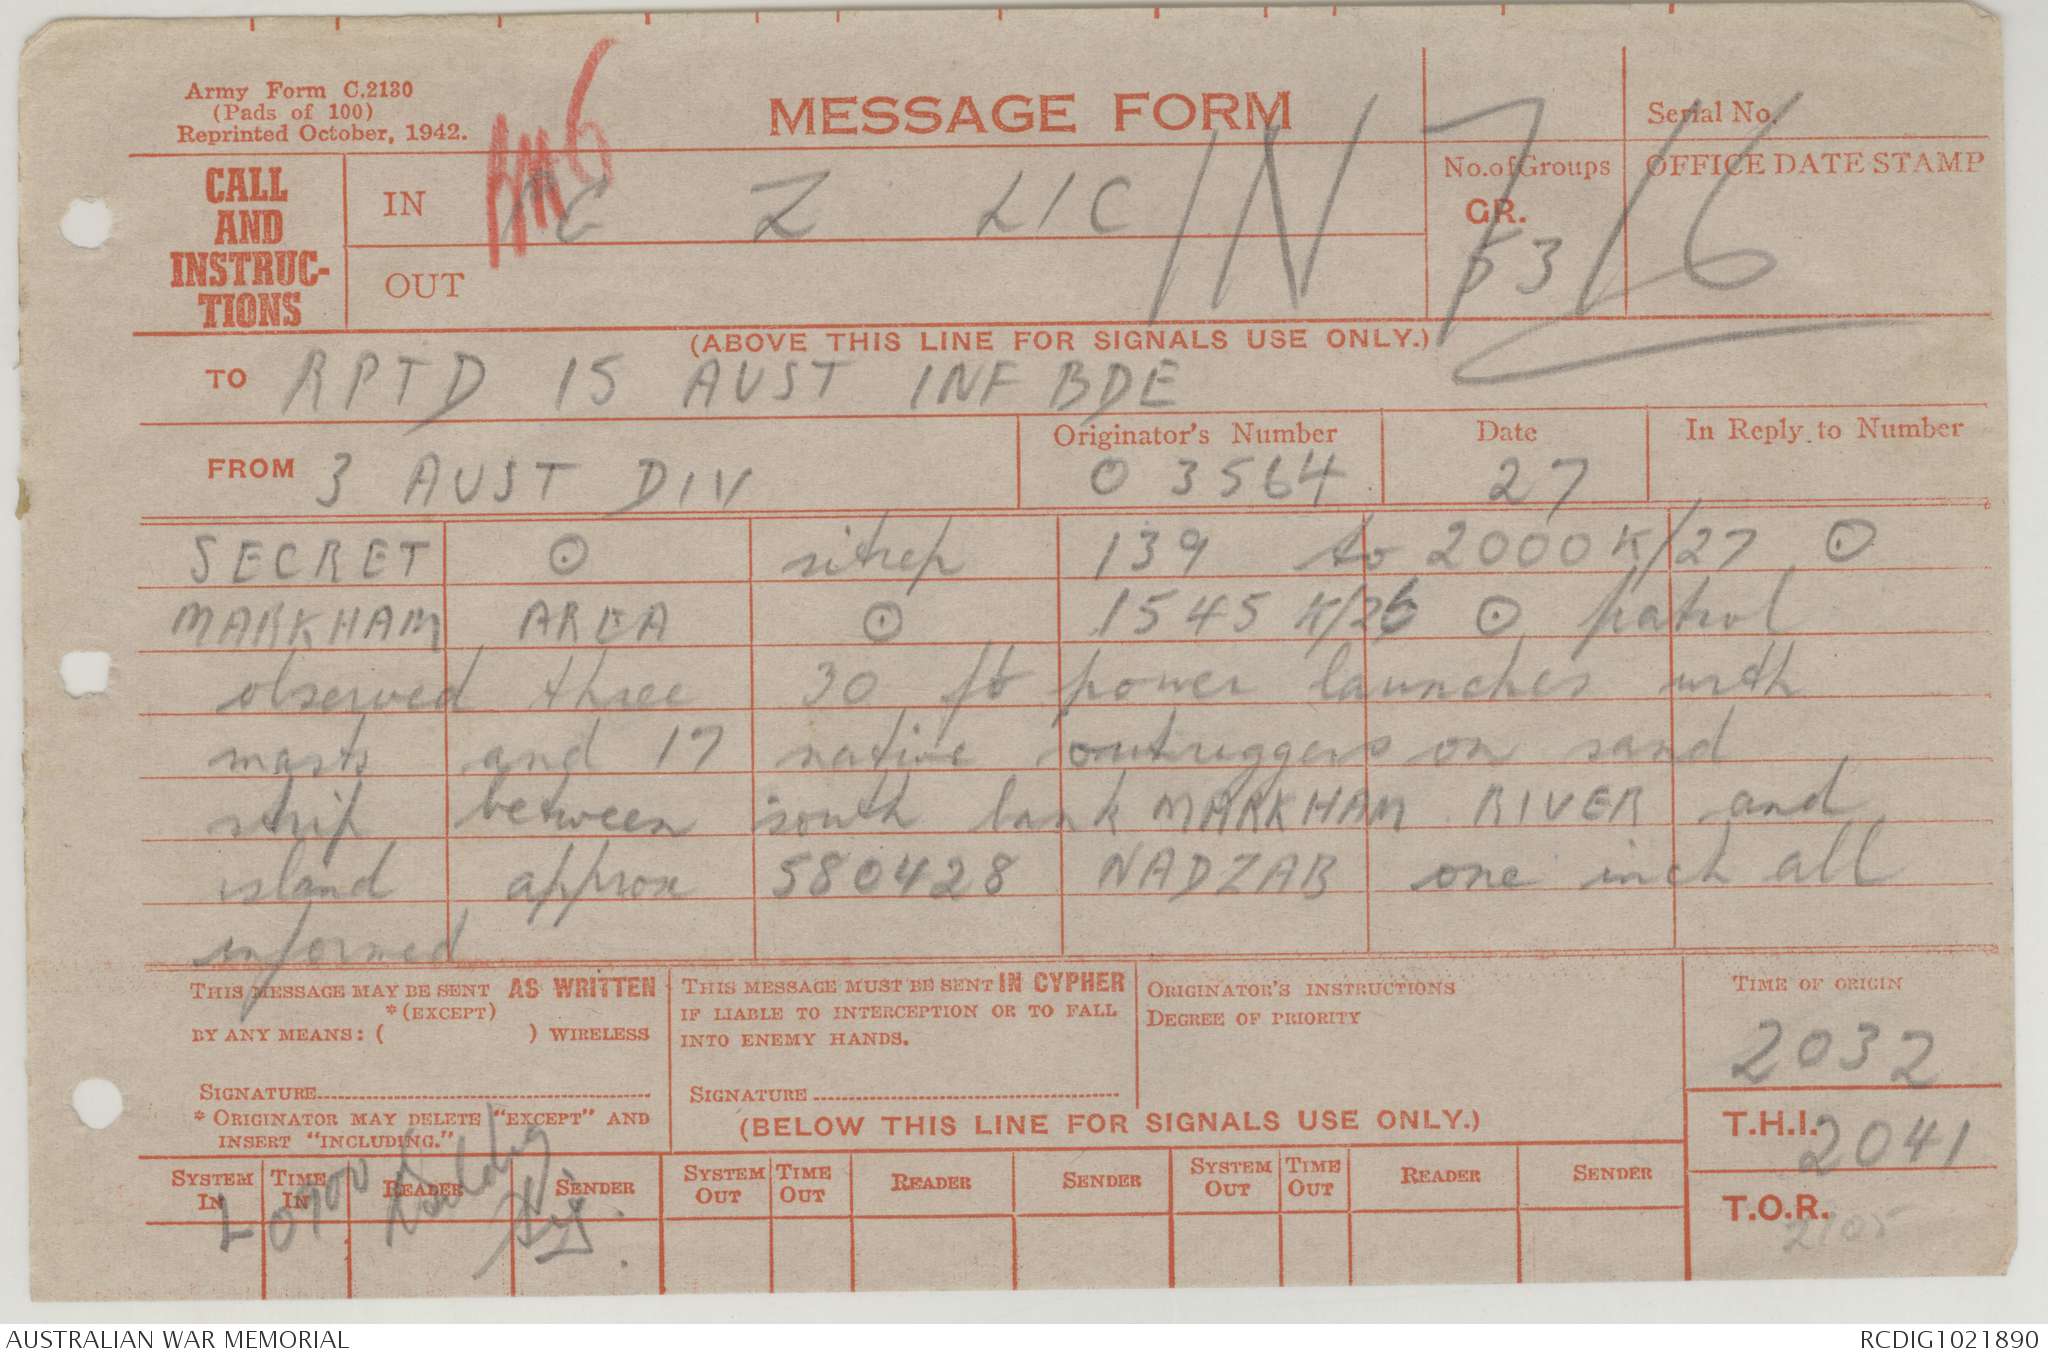 Army Form C.2130
(Pads of 100)
Reprinted October, 1942.
MESSAGE FORM
Serial No.
CALL
AND
INSTRUC-
TIONS
IN
Z LIC
IN 7/6
No. of Groups
GR.
53
OFFICE DATE STAMP
OUT
(ABOVE THIS LINE FOR SIGNALS USE ONLY.)
TO RPTD 15 AUST INF BDE
FROM 3 AUST DIV
Originator's Number
O 3564
Date
27
In Reply to Number
SECRET ⊙ sitrep 139 to 2000K/27 ⊙
MARKHAM AREA ⊙ 1545 K/26 ⊙ patrol
observed three 30 ft power launches with
masts and 17 native outriggers on sand
strip between south bank MARKHAM RIVER and
island approx 580428 NADZAB one inch all
informed
THIS MESSAGE MAY BE SENT AS WRITTEN
*(EXCEPT)
BY ANY MEANS: ( ) WIRELESS
SIGNATURE
* ORIGINATOR MAY DELETE "EXCEPT" AND
INSERT "INCLUDING."
THIS MESSAGE MUST BE SENT IN CYPHER
IF LIABLE TO INTERCEPTION OR TO FALL
INTO ENEMY HANDS.
SIGNATURE
ORIGINATOR'S INSTRUCTIONS
DEGREE OF PRIORITY
TIME OF ORIGIN
2032
(BELOW THIS LINE FOR SIGNALS USE ONLY.)
T.H.I. 2041
T.O.R. 2105
SYSTEM IN TIME IN READER SENDER SYSTEM OUT TIME OUT READER SENDER SYSTEM OUT TIME OUT READER SENDER
L 0700
AUSTRALIAN WAR MEMORIAL
RCDIG1021890